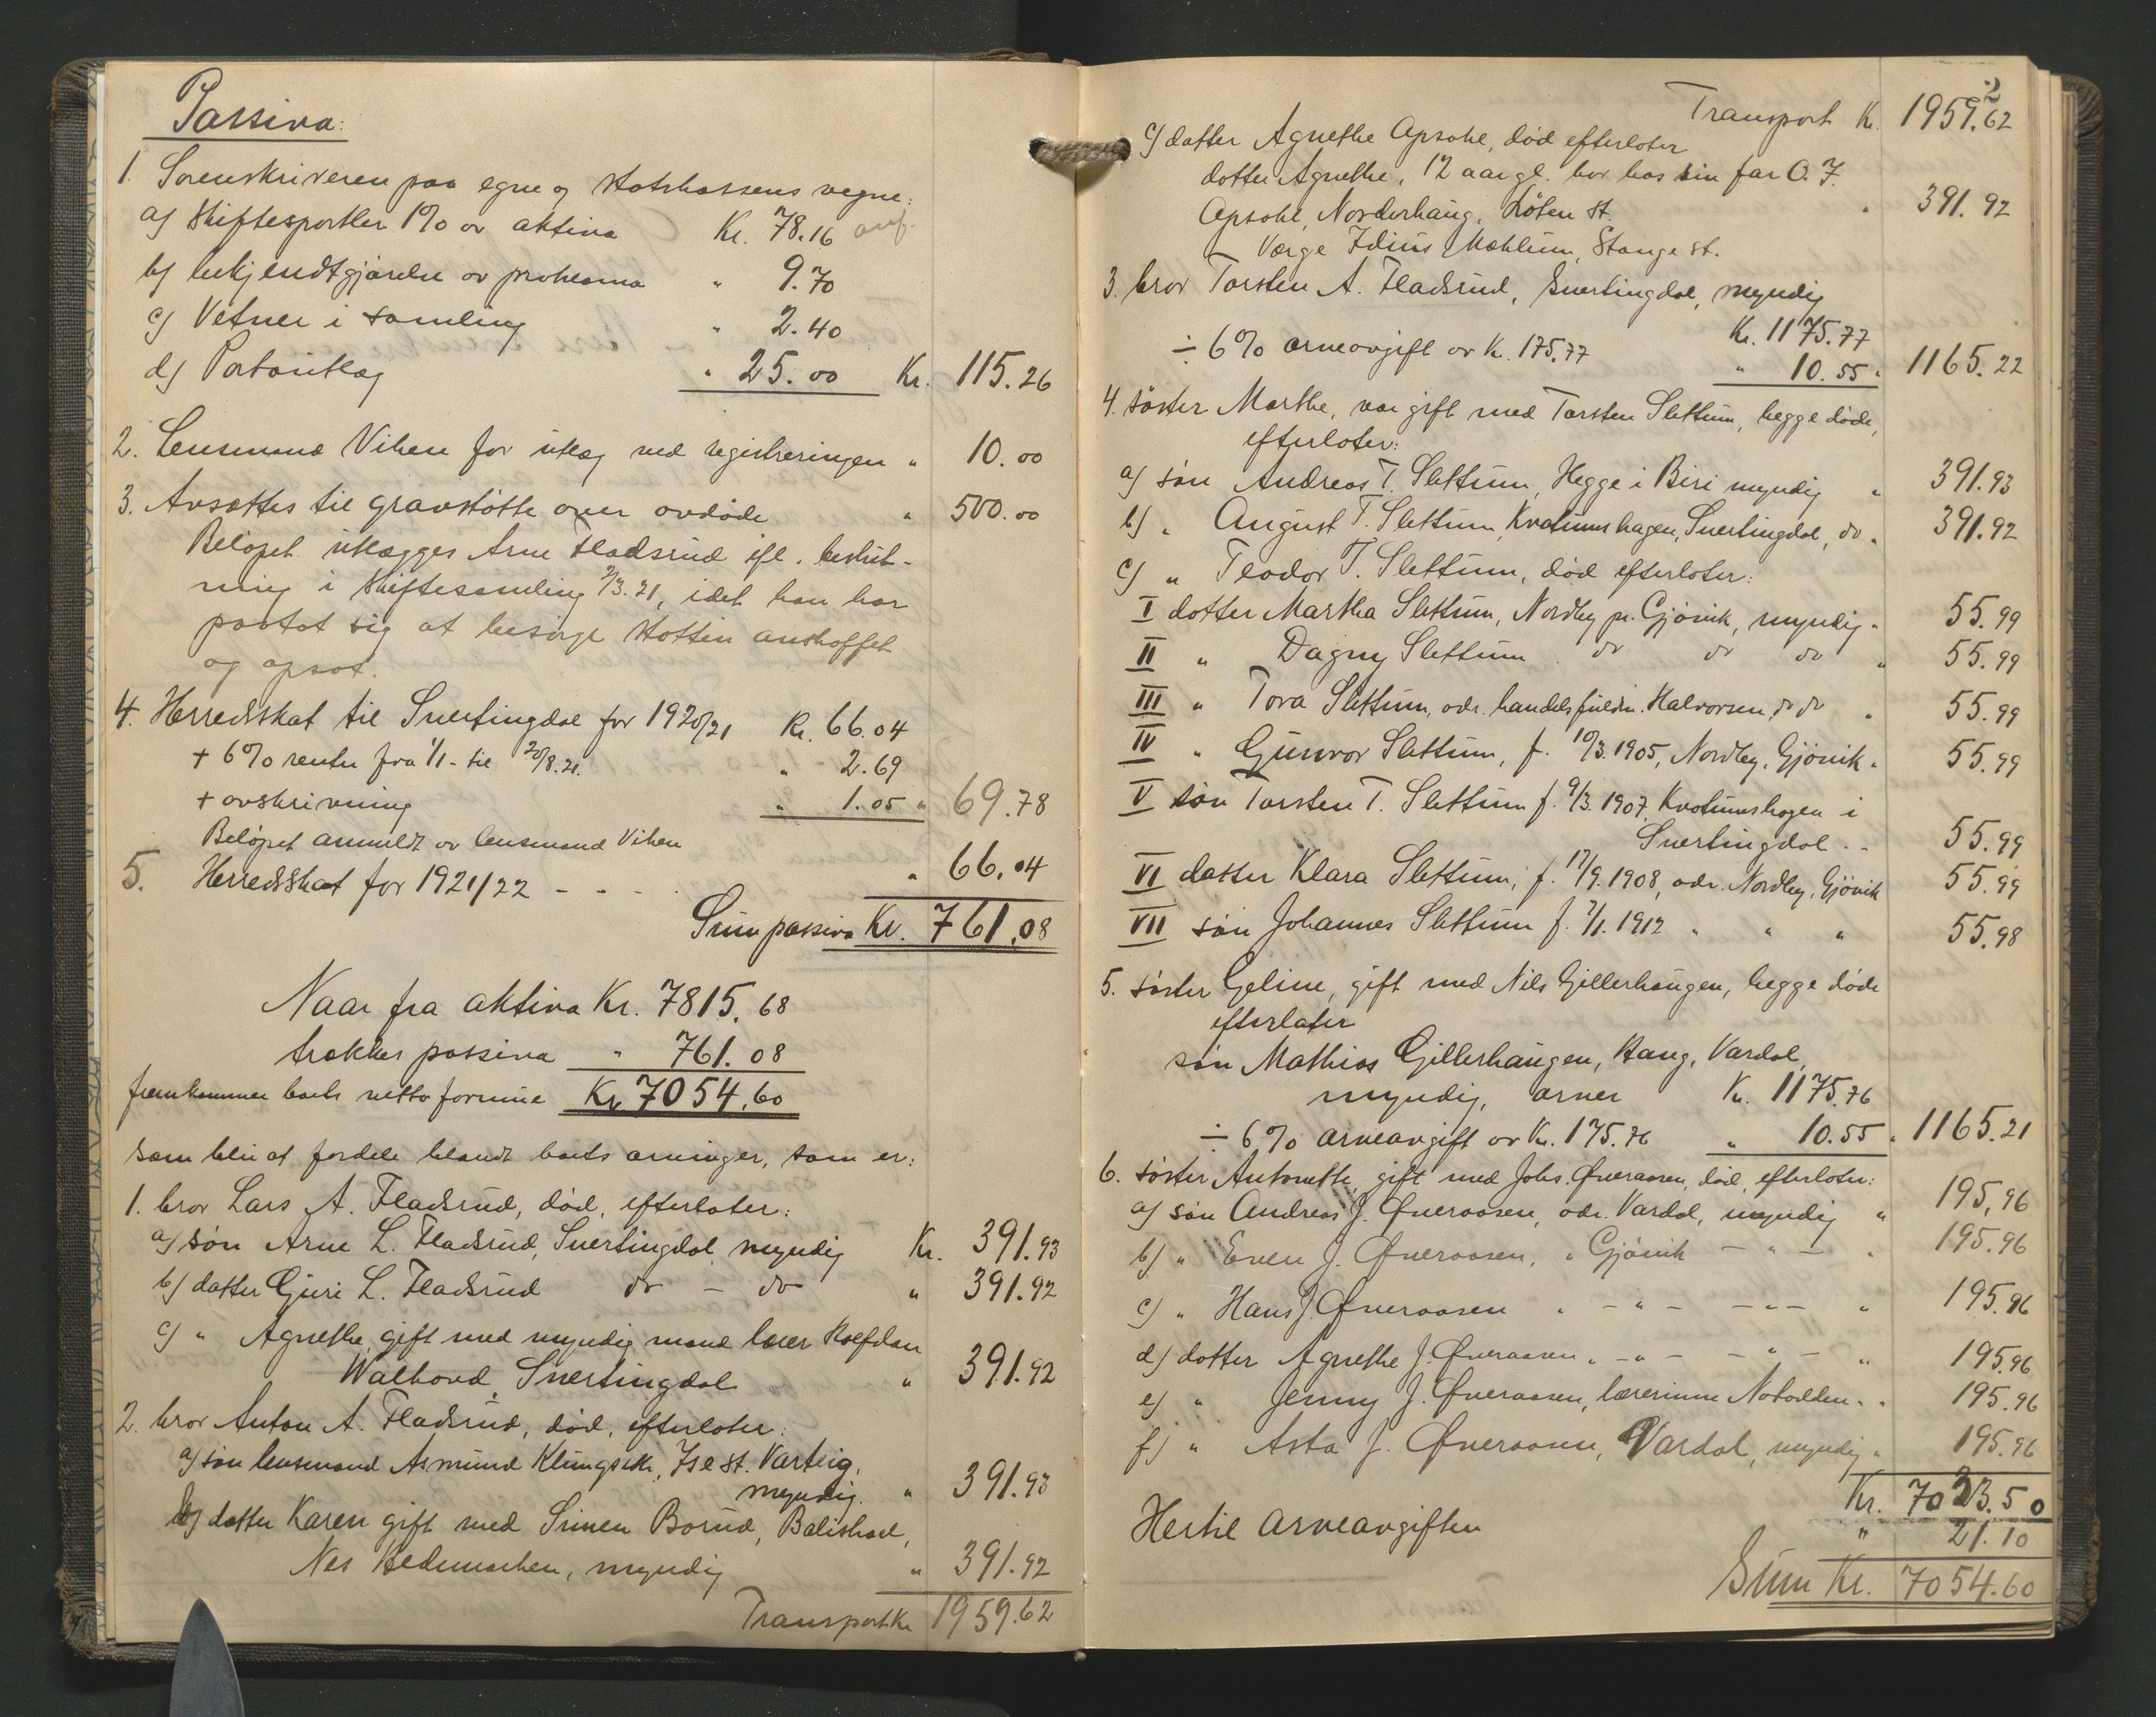 Passiva:
1. Sorenskriveren paa egne og statskassens vegne:
a) Skiftesportler 1% av aktiva Kr. 78.16
b) bekjendtgjørelse av proklama " 9.70
c) Vetner i samling " 2.40
d) Portoutlæg " 25.00 Kr. 115.26
2. Lensmand Viken for utlæg ved registreringen " 10.00
3. Avsættes til gravstøtte over avdøde " 500.00
Beløpet utlægges Arne Fladsrud ifl. beslut-
ning i skiftesamling 2/3.21, idet han har
paatat sig at besørge støtten anskaffet
og opsat.
4. Herredskat til Snertingdal for 1920/21 Kr. 66.04
+ 6% renter fra 1/1 - til 20/8.21. " 2.69
+ avskrivning " 1.05 " 69.78
Beløpet anmeldt av lensmand Viken
5. Herredskat for 1921/22 - - - " 66.04
Sum passiva Kr. 761.08
Naar fra aktiva Kr. 7815.68
trækkes passiva " 761.08
fremkommer boets netto formue Kr 7054.60
som blir at fordele blandt boets arvinger, som er:
1. bror Lars A. Fladsrud, død, efterlater:
a) søn Arne L. Fladsrud, Snertingdal, myndig Kr. 391.93
b) datter Guri L. Fladsrud do - do " 391.92
c) " Agnethe, gift med myndig mand lærer Halfdan
Walhovd, Snertingdal " 391.92
2. bror Anton A. Fladsrud, død, efterlater:
a) søn lensmand Asmund Klungseth, Ise st. Varteig,
myndig. " 391.93
b) datter Karen gift med Simen Borud, Balishoel,
Nes Hedemarken, myndig " 391.92
Transport Kr 1959.62
2
Transport Kr. 1959.62
c) datter Agnethe Opsahl, død efterlater
datter Agnethe, 12 aar gl. bor hos sin far O. J.
Opsahl, Norderhaug, Løten st. " 391.92
Værge Julius Mæhlum, Stange st.
3. bror Torsten A. Fladsrud, Snertingdal, myndig
Kr. 1175.77
÷ 6% arveavgift av Kr. 175.77 " 10.55 " 1165.22
4. søster Marthe, var gift med Torsten Slettum, begge døde,
efterlater:
a) søn Andreas T. Slettum, Hegge i Biri myndig " 391.93
b) " August T. Slettum, Kvatumshagen, Snertingdal, do " 391.92
c) " Teodor T. Slettum, død efterlater:
I datter Martha Slettum, Nordby pr. Gjøvik, myndig " 55.99
II " Dagny Slettum do do do " 55.99
III " Tora Slettum, adr. handelsfuldm. Halvorsen, do do " 55.99
IV " Gunvor Slettum, f. 10/3.1905, Nordby, Gjøvik " 55.99
V søn Torsten T. Slettum f. 9/3.1907, Kvatumshagen i
Snertingdal - - 55.99
VI datter Klara Slettum, f. 17/9.1908, adr. Nordby, Gjøvik 55.99
VII søn Johannes Slettum f. 7/1.1912 " " " 55.98
5. søster Geline, gift med Nils Gillerhaugen, begge døde
efterlater
søn Mathias Gillerhaugen, Haug, Vardal,
myndig, arver Kr. 1175.76
÷ 6% arveavgift av Kr. 175.76 " 10.55 " 1165.21
6. søster Antonette, gift med Johs. Øveraasen, død, efterlater:
a) søn Andreas J. Øveraasen, adr. Vardal, myndig " 195,96
b) " Even J. Øveraasen, " Gjøvik - " - " 195.96
c) " Hans J. Øveraasen " - " - - " - " 195.96
d) datter Agnethe J. Øveraasen " - " - - " - " 195.96
e) " Jenny J. Øveraasen, lærerinne Notodden " " 195.96
f) " Asta J. Øveraasen, Vardal, myndig " 195.96
Kr. 7033.50
Hertil arveavgiften " 21.10
Sum Kr. 7054.60